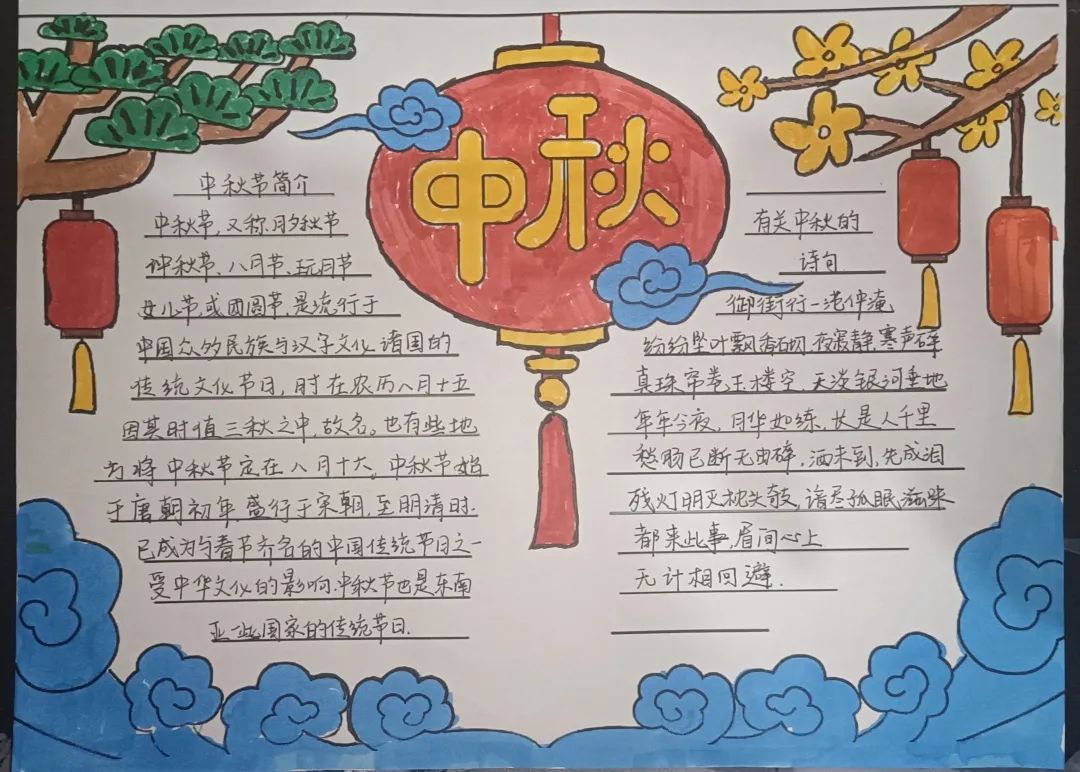 中秋
中秋节简介
中秋节,又称月夕秋节
仲秋节、八月节、玩月节
女儿节,或团圆节,是流行于
中国众多民族与汉字文化诸国的
传统文化节日,时在农历八月十五
因其时值三秋之中,故名。也有些地
方将中秋节定在八月十六。中秋节始
于唐朝初年,盛行于宋朝,至明清时.
已成为与春节齐名的中国传统节日之一
受中华文化的影响.中秋节也是东南
亚一些国家的传统节日.
有关中秋的
诗句
御街行-范仲淹
纷纷坠叶飘香砌.夜寂静,寒声碎
真珠帘卷玉楼空.天淡银河垂地
年年今夜,月华如练,长是人千里
愁肠已断无由碎,酒未到,先成泪
残灯明灭枕头敧,谙尽孤眠滋味
都来此事,眉间心上
无计相回避.